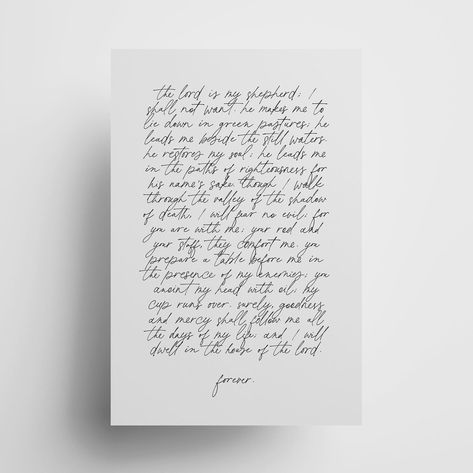 the lord is my shepherd; I
shall not want. he makes me to
lie down in green pastures; he
leads me beside the still waters.
he restores my soul; he leads me
in the paths of righteousness for
his name's sake. though I walk
through the valley of the shadow
of death, I will fear no evil; for
you are with me; your rod and
your staff, they comfort me. you
prepare a table before me in
the presence of my enemies; you
anoint my head with oil; my
cup runs over. surely, goodness
and mercy shall follow me all
the days of my life; and I will
dwell in the house of the lord.
forever.